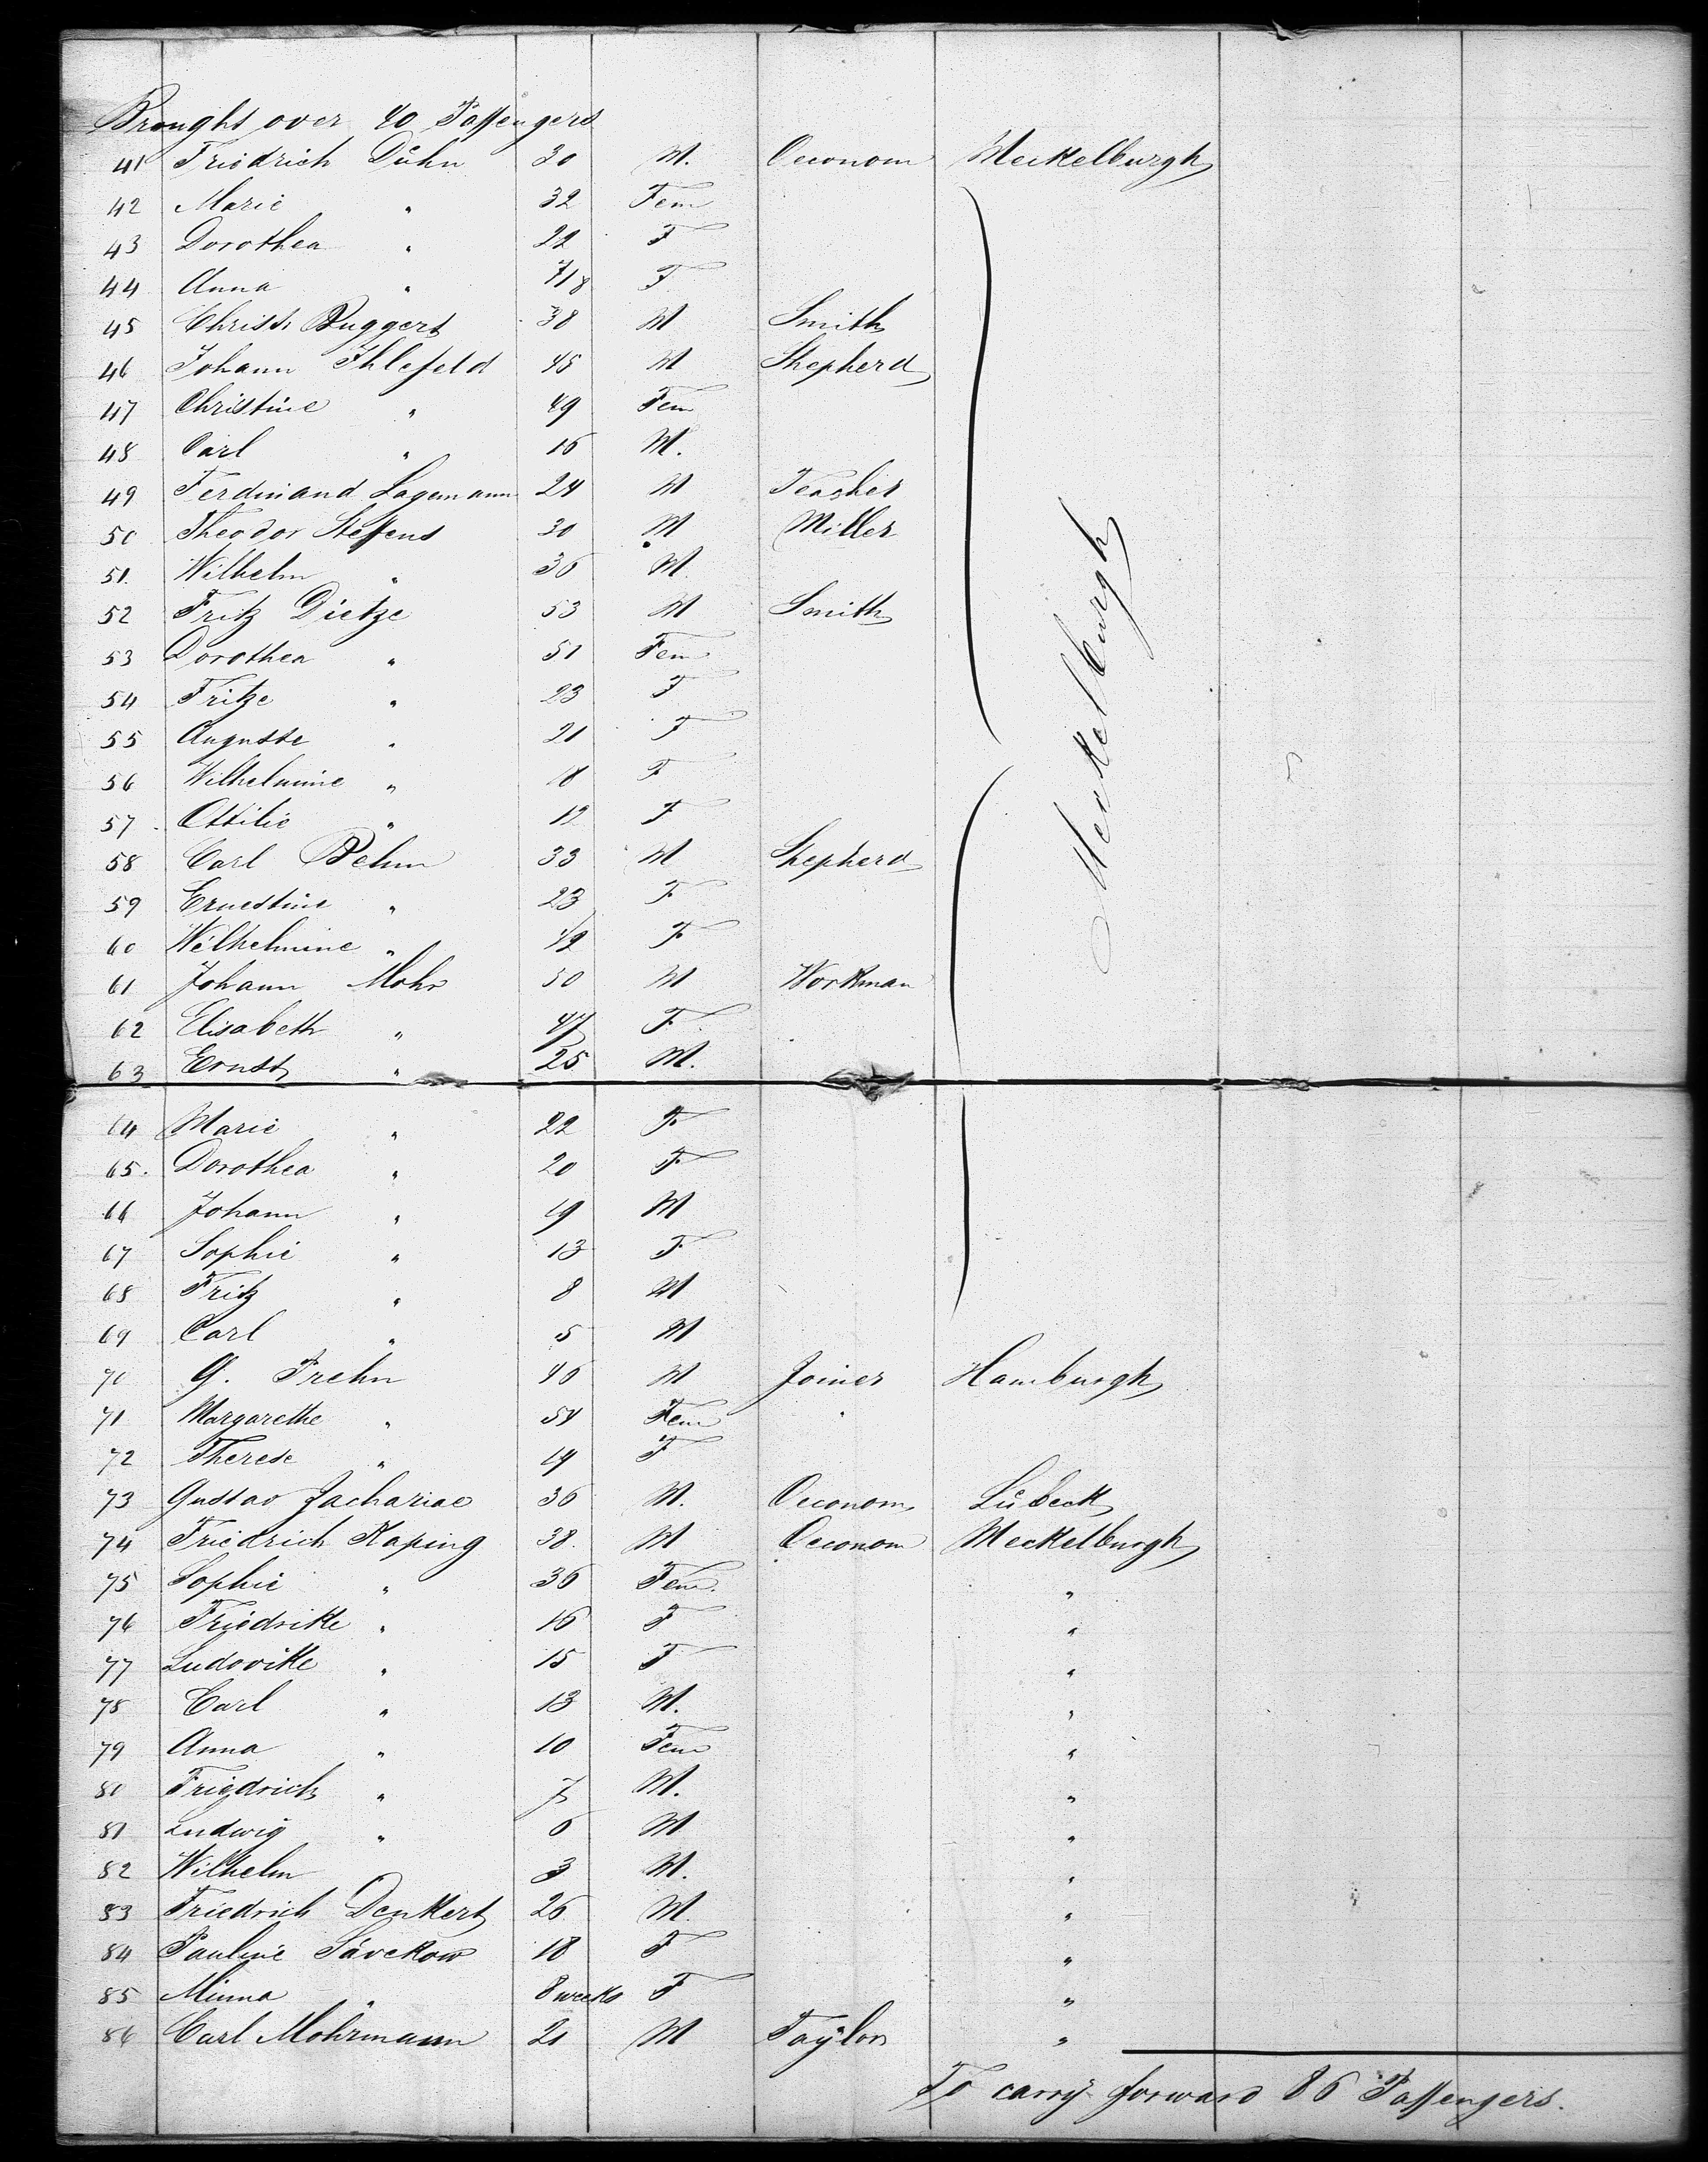 Brought over 40 Passengers
41 Friedrich Dühn 30 M. Oeconom Meckelburgh
42 Marie " 32 Fem
43 Dorothea " 22 F
44 Anna " F
45 Christ. Buggert 38 M Smith
46 Johann Ihlefeld 45 M Shepherd
47 Christine " 49 Fem
48 Carl " 16 M.
49 Ferdinand Lagemann 24 M Teacher
50 Theodor Steffens 30 M Miller
51. Wilhelm " 36 M.
52 Fritz Dietze 53 M Smith
53 Dorothea " 51 Fem
54 Fritze " 23 F
55 Auguste " 21 F
56 Wilhelmine " 18 F
57. Ottilie " 12 F
Meckelburgh
58 Carl Behm 33 M Shepherd
59 Ernestine " 23 F
60 Wilhelmine " 1/2 F
61 Johann Mohr 50 M Workman
62 Elisabeth " 47 F
63 Ernst " 25 M.
64 Marie " 22 F
65. Dorothea " 20 F
66 Johann " 19 M
67 Sophie " 13 F
68 Fritz " 8 M
69 Carl " 5 M
70 G. Frehn 46 M Joiner Hamburgh
71 Margarethe " 54 Fem "
72 Therese " 19 F
73 Gustav Zachariae 36 M. Oeconom Lübeck
74 Friedrich Kaping 38. M Oeconom Meckelburgh
75 Sophie " 36 Fem. "
76 Friedrike " 16 F "
77 Ludovike " 15 F "
78 Carl " 13 M. "
79 Anna " 10 Fem "
80 Friedrich " 7 M. "
81 Ludwig " 6 M "
82 Wilhelm 3 M. "
83 Friedrich Denkert 26 M. "
84 Pauline Sävekow 18 F "
85 Minna " 8 weeks F "
86 Carl Mohrmann 21 M Taylor "
To carry forward 86 Passengers.